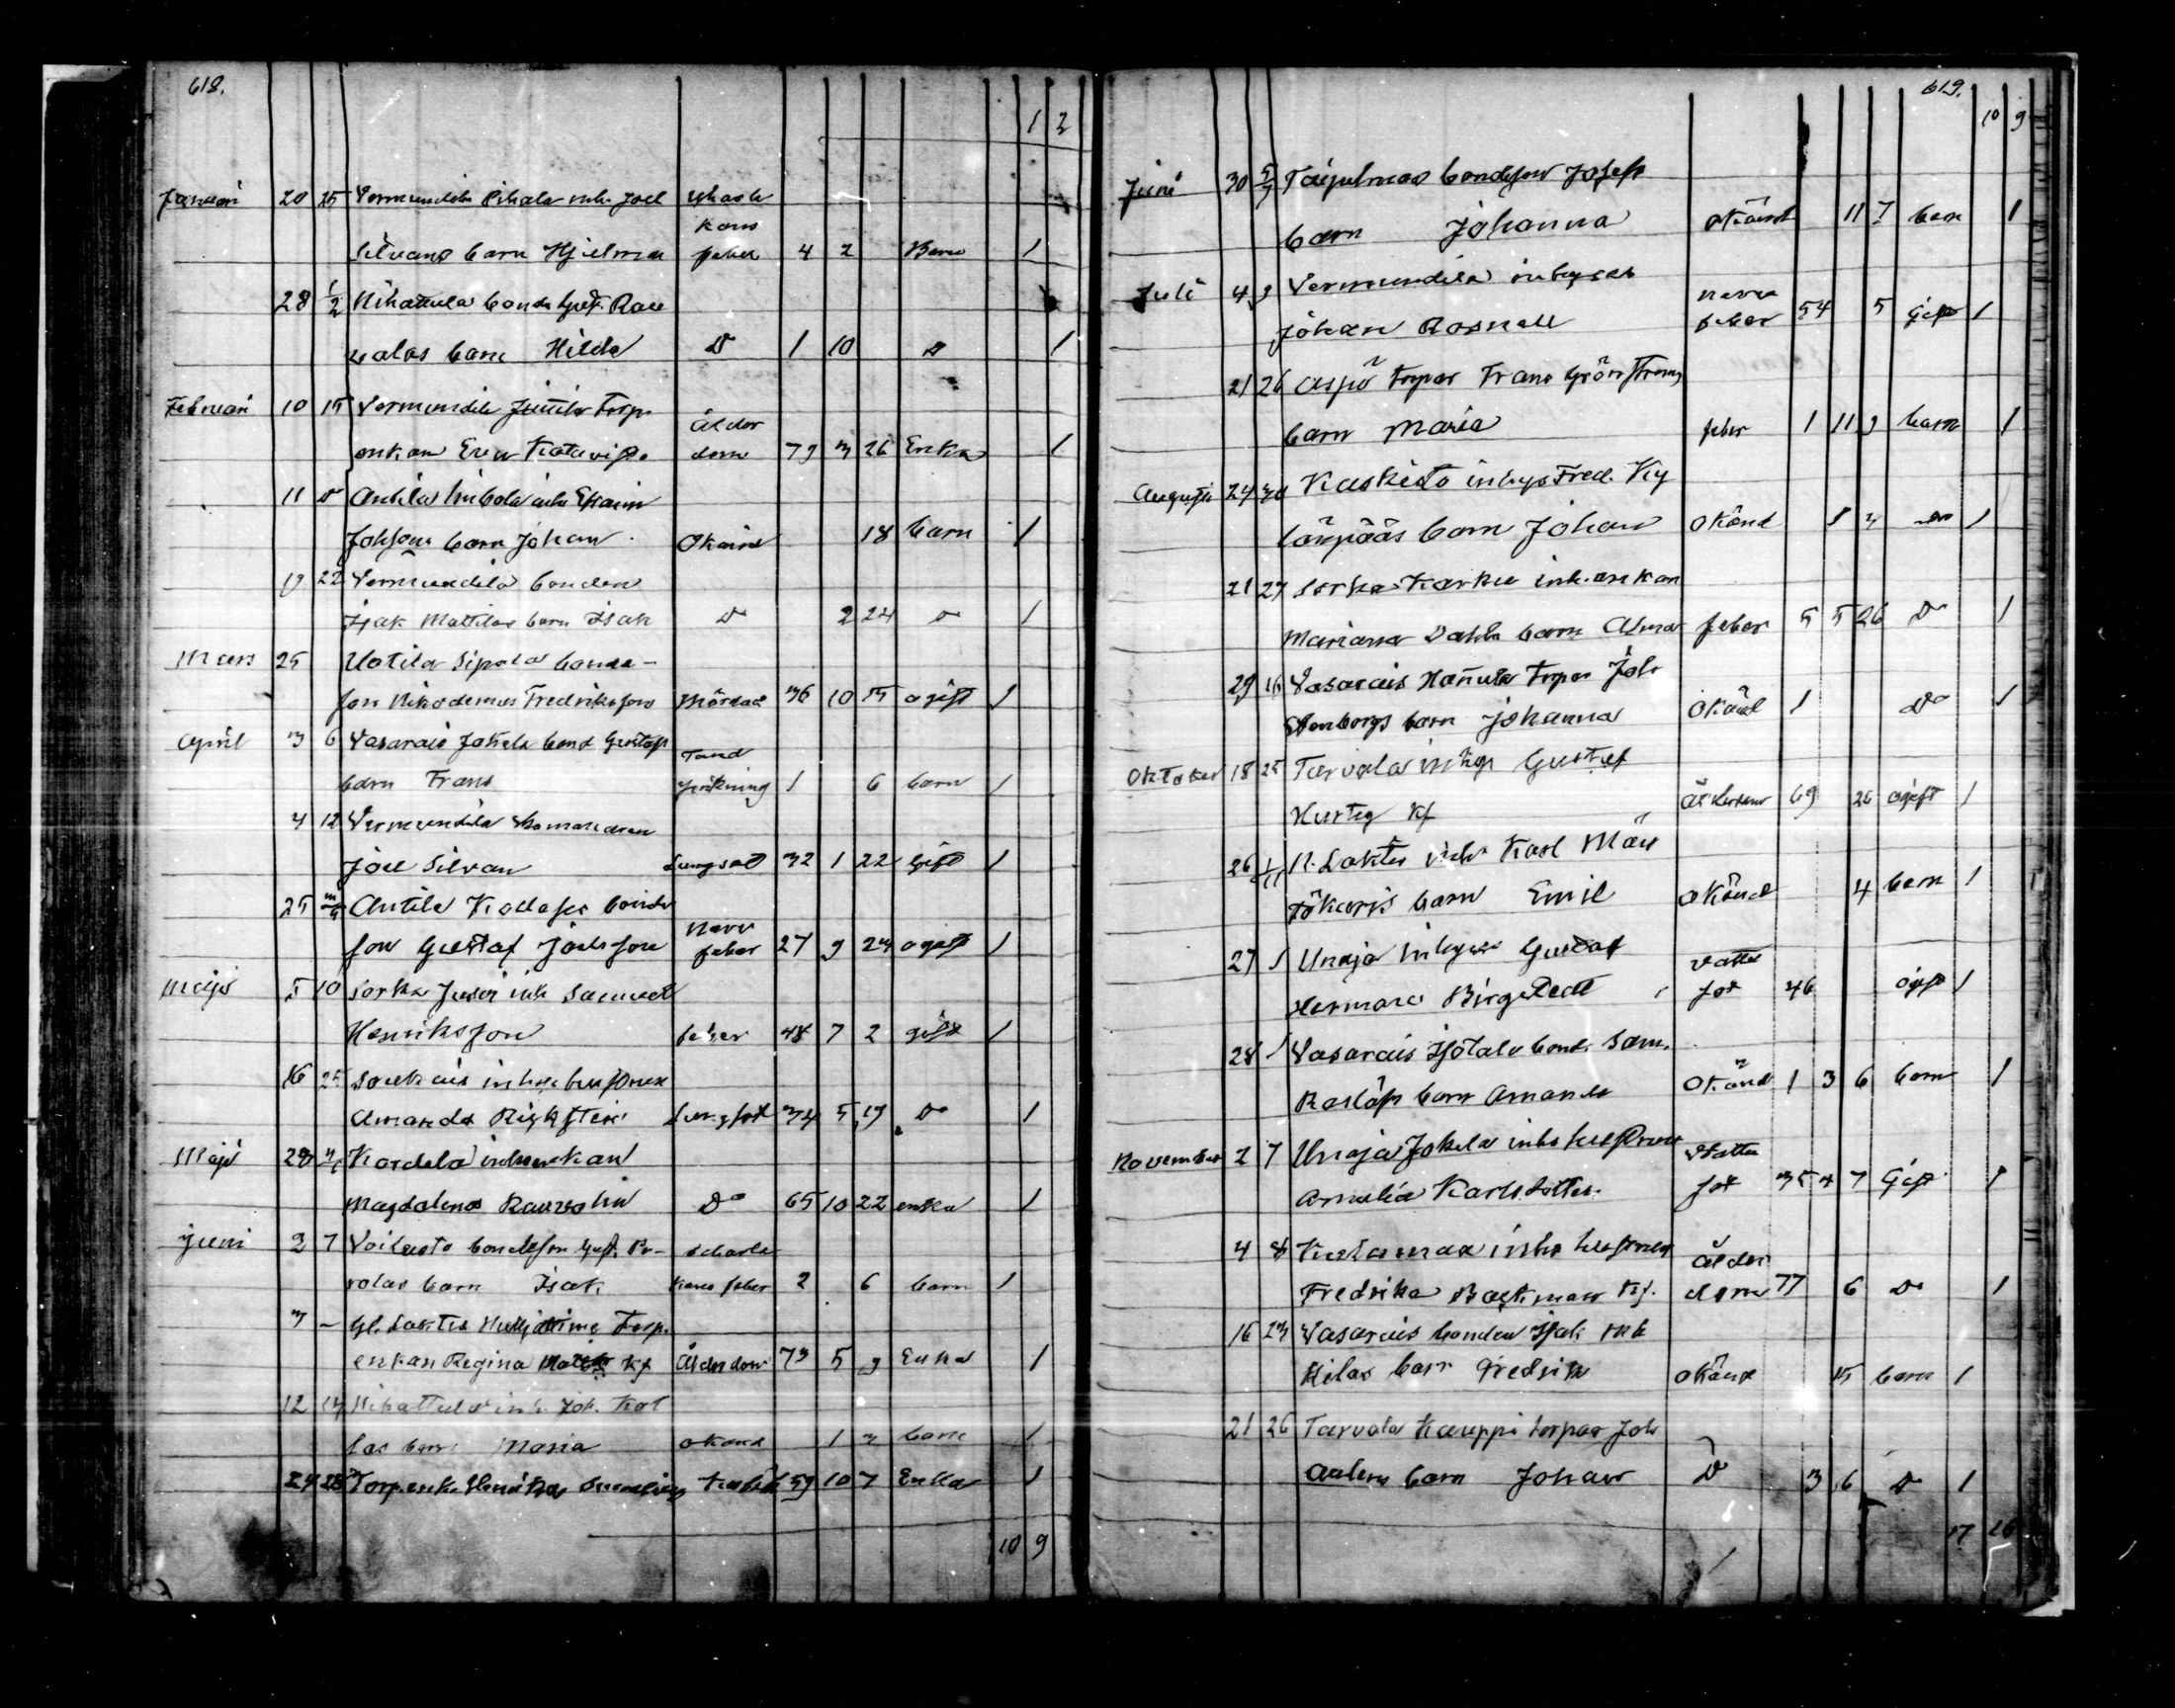 618.
1 2
Januari 20 25 Vermundila Pihala inh. Joel Skarla
kans
Silvans barn Hjelma feber 4 2 Barn 1
28 1/2 Nihattula bonde Gust. Rau
valas barn Hilda D 1 10 D 1
Februari 10 15 Vermundila Junila Torp
enkan Eva ålder
dom 79 3 26 Enka 1
11 D Antila inh Efraim
Johsons barn Johan Okänd 18 barn 1
19 22 Vermundila bonden
Isak Mattilas barn Isak D 2 24 D 1
Mars 25 Uotila Sipola bonde-
son Nikodemus Fredriksson Mördad 36 10 15 ogift 1
April 3 6 Vasarais Jokela bond Gustafs Tand
barn Frans sprickning 1 6 barn 1
4 12 Vermundila
Joel Silvan Lungsot 32 1 22 Gift 1
25 Antila bonde
son Gustaf Joelsson Nerv
feber 27 9 23 ogift 1
Maji 5 10 Sorka Jusoi inh Samuel
Henriksson feber 48 7 2 gift 1
16 25 Soukais inhys hustrun
Amanda Lungsot 34 5 19 D 1
Maji 28 Kordela inhysenkan
Magdalena D 65 10 22 enka 1
Juni 2 7 Voiluoto bondeson Gust. Ra- Scharla
volas barn Isak kans feber 2 6 barn 1
3 - Gl. Laktis Torp.
enkan Regina Kf Ålderdom 73 5 9 Enka 1
12 14 Nihattula inh. Joh. Kal
las barn Maria okänd 1 3 barn 1
24 28 Torp. enk. Henrika 59 10 7 Enka 1
10 9
619.
10 9
Juni 30 5/7 Taipalmas bondeson Josefs
barn Johanna Okänd 11 7 barn 1
Juli 4 9 Vermundila inhyses
Johan Rosnell nerv
feber 54 5 Gift 1
21 26 Aspö torpar Frans Grönströms
barn Maria feber 1 11 9 barn 1
Augusti 24 30 Kaskisto inhys Fred. Ky
länpääs barn Johan Okänd 1 4 D 1
21 27 Sorka Karku inh. enkan
Mariana Dahls barn Alma feber 5 5 26 D 1
29 16 Vasarais Hannula torpar Joh
Stenborgs barn Johanna Okänd 1 D 1
Oktober 18 25 Tarvola inhys Gustaf
Hurtig Kf Ålderdom 69 26 ogift 1
26 1/11 N. Laktis inh Karl Män
tökaris barn Emil Okänd 4 barn 1
27 1 Unaja inhyses Gustaf Vatten
Herman Birgstedt sot 46 ogift 1
28 1 Vasarais Isotalo bond. Sam.
Roslöfs barn Amanda Okänd 1 3 6 barn 1
November 2 7 Unaja Jokela inhs hustrun Vatten
Amalia Karlsdotter sot 35 4 7 Gift 1
4 8 inhs hustrun Ålder
Fredrika Backman Kf. dom 77 6 D 1
16 23 Vasarais bonden Isak Mik
kilas barn Fredrik Okänd 15 barn 1
21 26 Tarvola Kauppi torpar Joh
Aalens barn Johan D 3 6 D 1
17 16